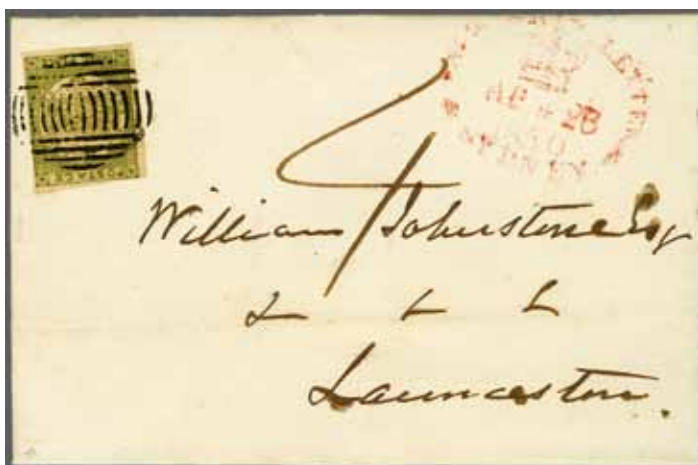 POSTAGE
SHIP LETTER
AP 28
1850
SYDNEY
4
William Johnstone Esq
Launceston.